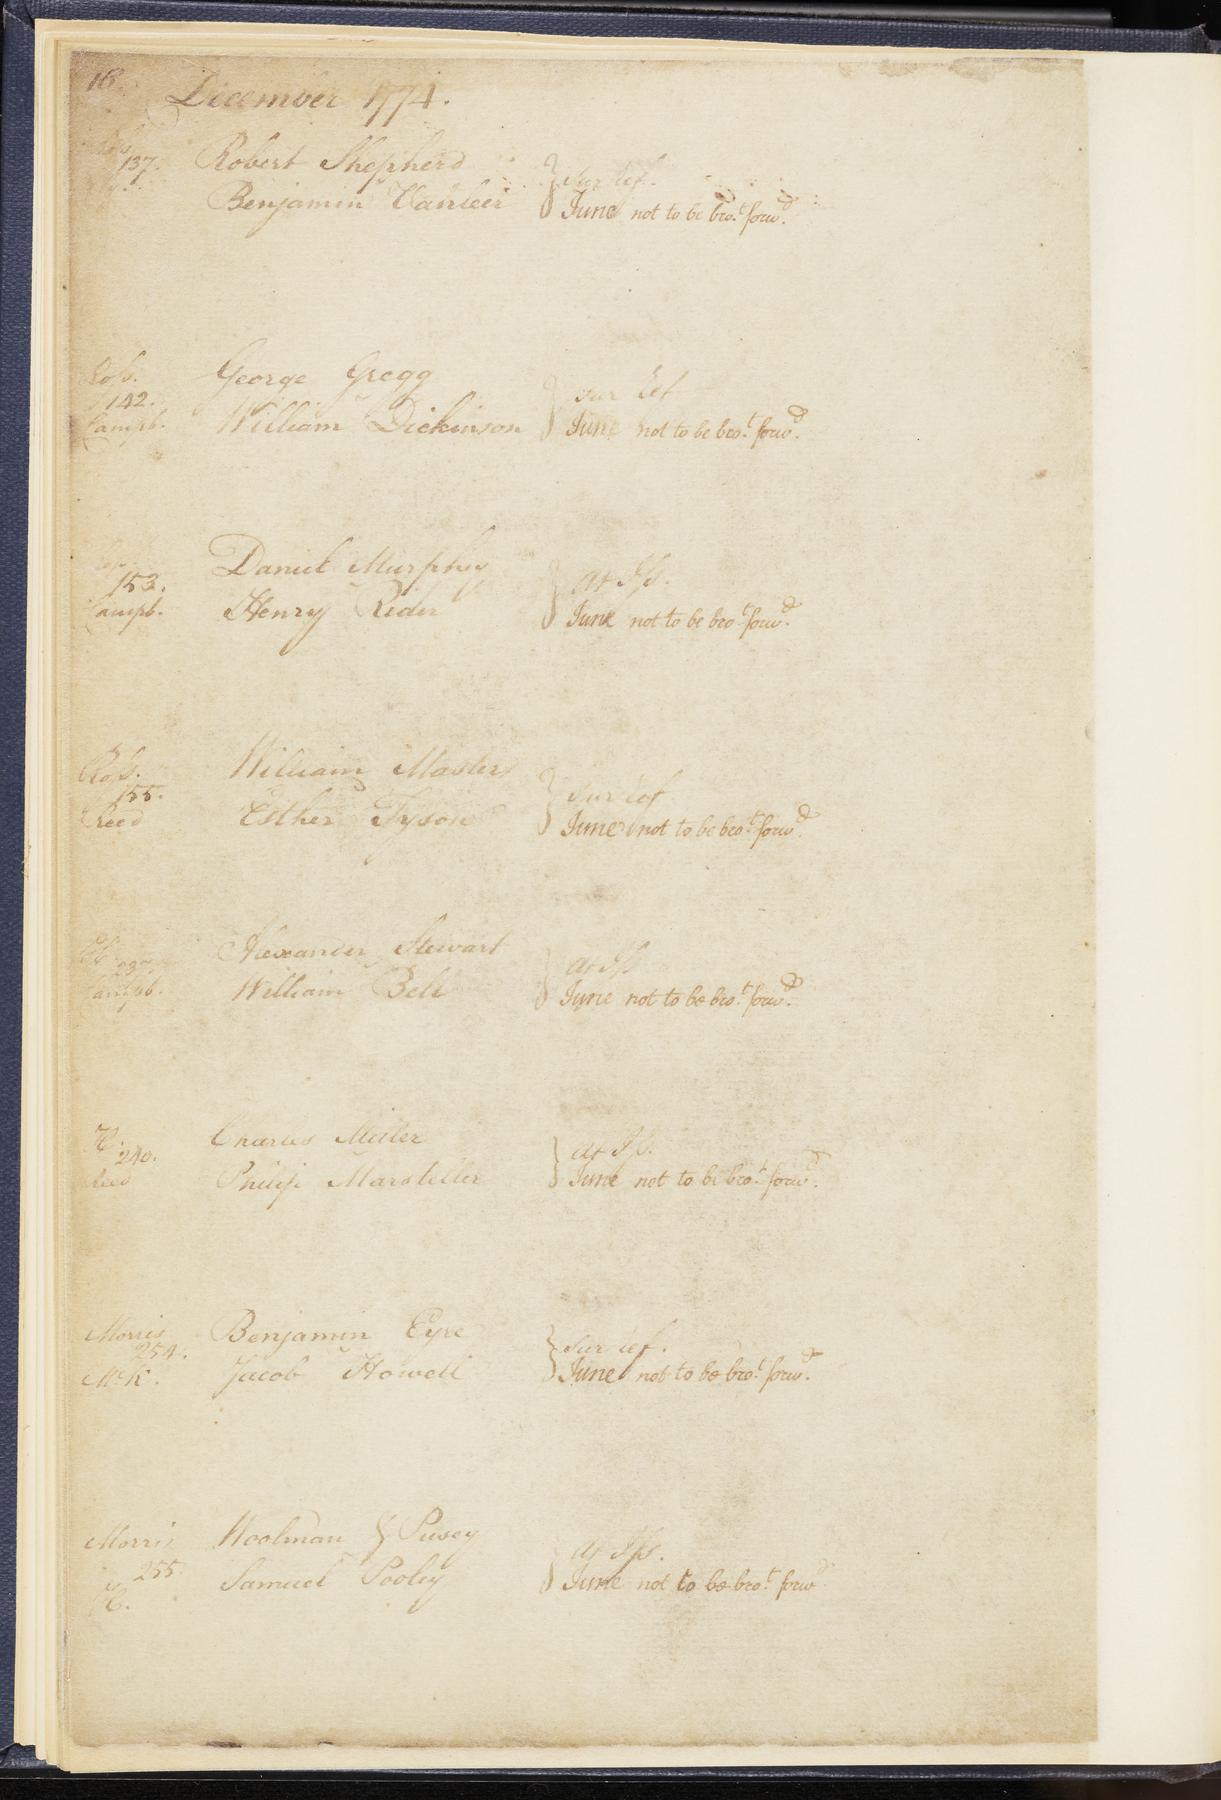 18.
December 1774.
Ross. 137.
Robert Shepherd
Benjamin Vanleer
} Sur Cef.
June not to be bro.t forw.d
Ross. 142. Campb.
George Gregg
William Dickinson
} Sur Cef
June not to be bro.t forw.d
153. Campb.
Daniel Murphy
Henry Rider
} At Iss.
June not to be bro.t forw.d
Ross. 155. Reed
William Masters
Esther Tyson
} Sur Cef
June not to be bro.t forw.d
Campb.
Alexander Stewart
William Bell
} At Iss
June not to be bro.t forw.d
240. Reed
Charles Miller
Philip Marsteller
} At Iss.
June not to be bro.t forw.d
Morris 254. McK.
Benjamin Eyre
Jacob Howell
} Sur Cef.
June not to be bro.t forw.d
Morris 255
Woolman & Pusey
Samuel Pooley
} At Iss.
June not to be bro.t forw.d